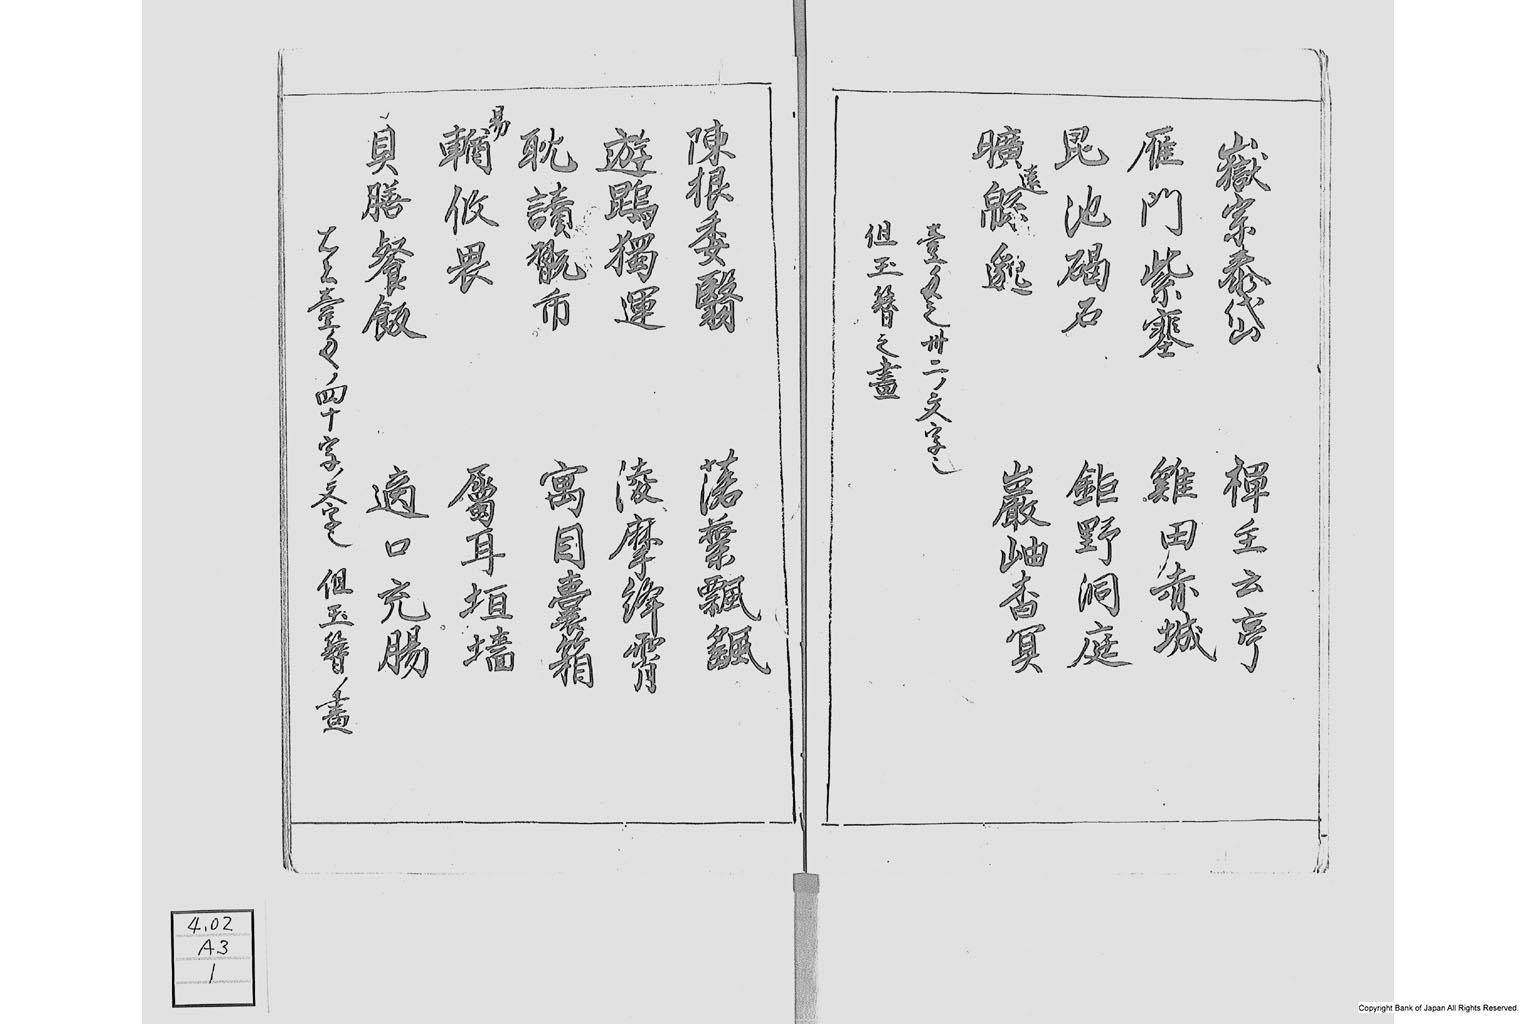 嶽宗泰岱　禅主云亭
雁門紫塞　雞田赤城
昆池碣石　鉅野洞庭
曠遠緜邈　巖岫杳冥
壹
卅二ノ文字
但玉簪之畫
陳根委翳　落葉飄颻
遊鵾獨運　淩摩絳霄
耽讀翫市　寓目囊箱
易輶攸畏　屬耳垣墻
具膳餐飯　適口充腸
四十字ノ文字　但玉簪ノ畫
4.02
A3
1
Copyright Bank of Japan All Rights Reserved.